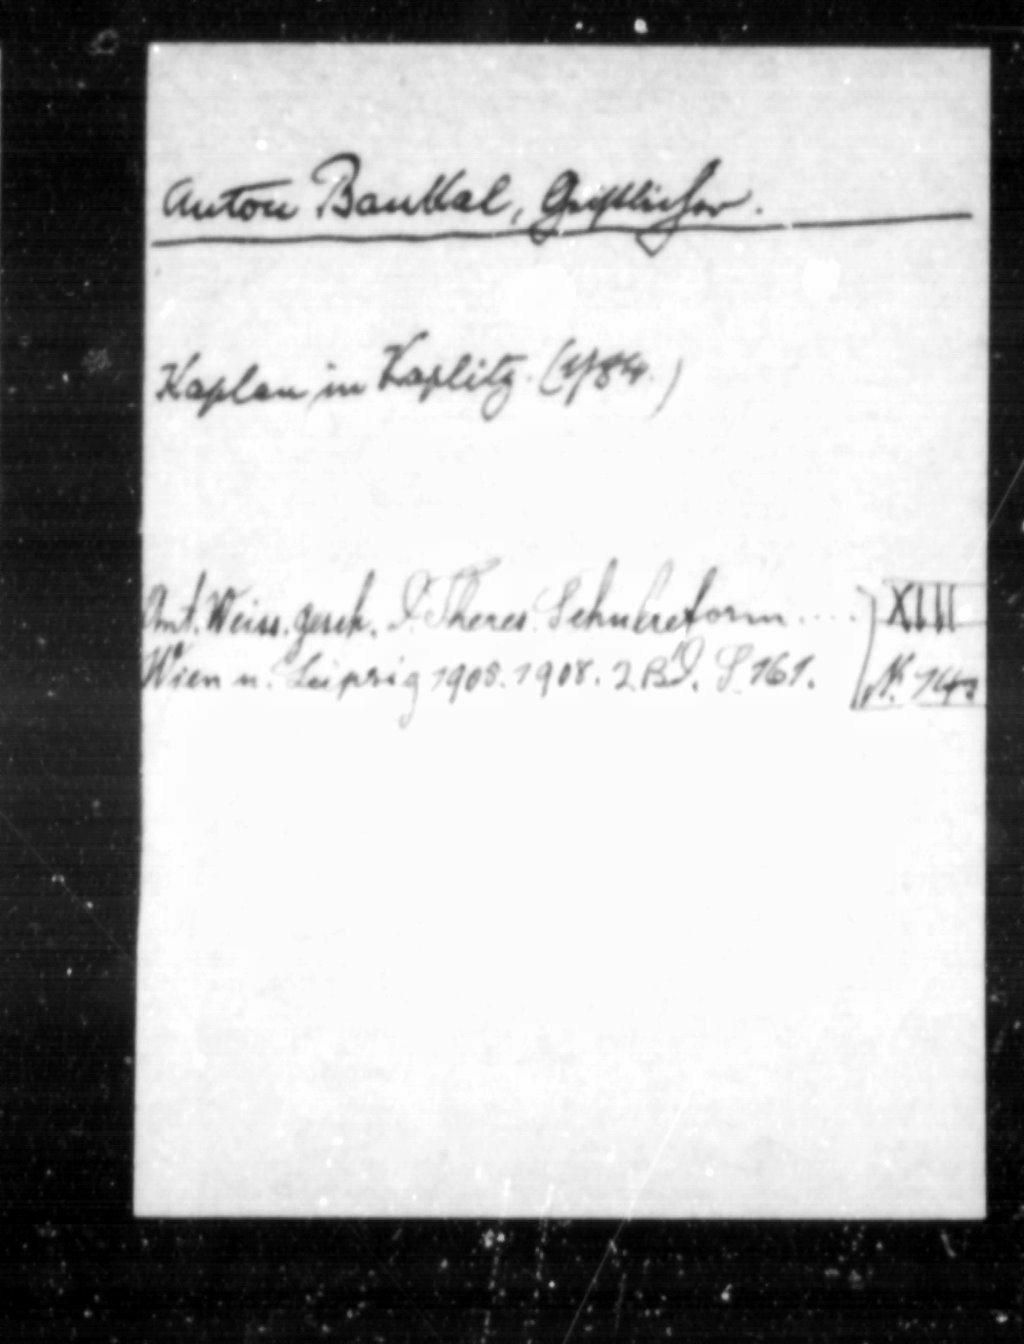 Anton Baukal, Geistlicher.
Kaplan in Kaplitz. (1784.)
Ant. Weiss. Gesch. d. Theres. Schulreform ....
XIII
Wien u. Leipzig 1908. 1908. 2 Bd. S 161.
N.